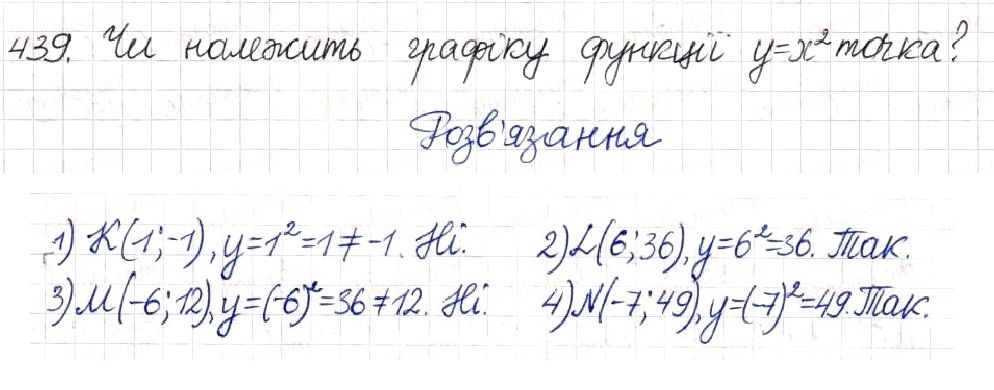 439. Чи належить графіку функції y=x² точка?
Розв'язання
1) K(1;-1), y=1²=1≠-1. Ні. 2) L(6;36), y=6²=36. Так.
3) M(-6;12), y=(-6)²=36≠12. Ні. 4) N(-7;49), y=(-7)²=49. Так.